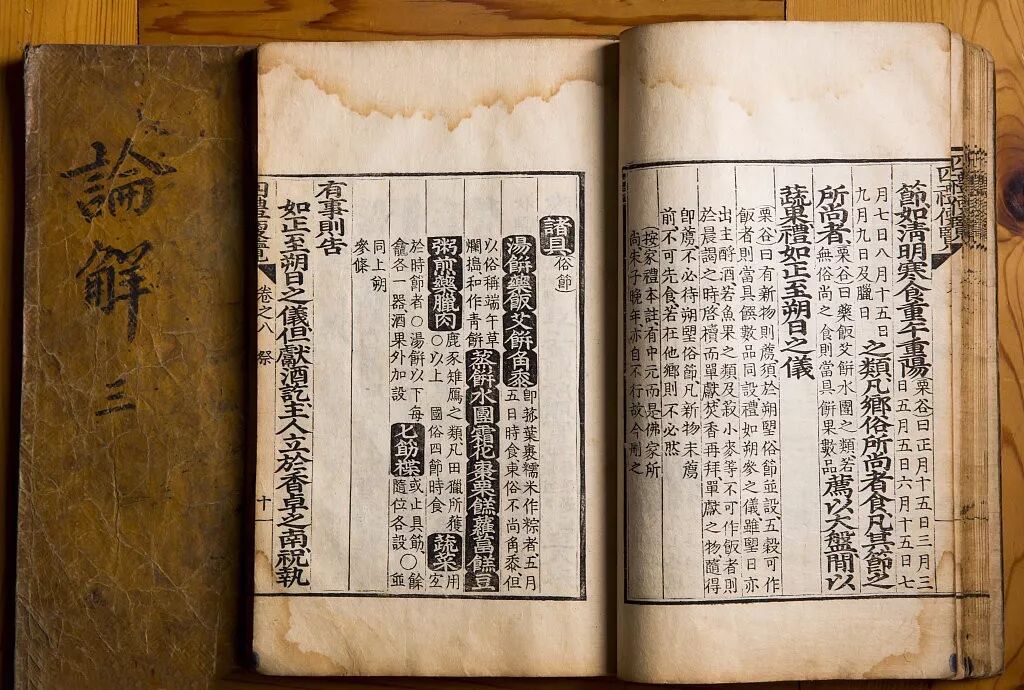 四禮便覽
節如清明寒食重午重陽栗谷曰正月十五日三月三日五月五日六月十五日七
月七日八月十五日九月九日及臘日之類凡鄉俗所尚者食凡其節之
所尚者栗谷曰藥飯艾餠水團之類若無俗尚之食則當具餠果數品薦以大盤間以
蔬果禮如正至朔日之儀
栗谷曰有新物則薦須於朔望俗節並設五穀可作
飯者則當具饌數品同設禮如朔參之儀雖望日亦
出主酹酒若魚果之類及菽小麥等不可作飯者則
於晨謁之時啓櫝而單獻焚香再拜單獻之物隨得
卽薦不必待朔望俗節凡新物未薦
前不可先食若在他鄉則不必然
按家禮本註有中元而是佛家所
尚朱子晚年亦自不行故今刪之
諸具俗節
湯餠藥飯艾餠角黍卽菰葉裹糯米作粽者五月五日時食東俗不尚角黍但
以俗稱端午草爛搗和作靑餠蒸餠水團霜花棗栗餻蘿葍餻豆
粥煎藥臘肉鹿豕雉鴈之類凡田獵所獲○以上國俗四節時食蔬菜用
於時節者○湯餠以下每龕各一器酒果外加設匕筯楪或止具筯○餘隨位各設並
同上朔參條
有事則告
如正至朔日之儀但獻酒訖主人立於香卓之南祝執
四禮便覽 卷之八 祭 十一
論解 三